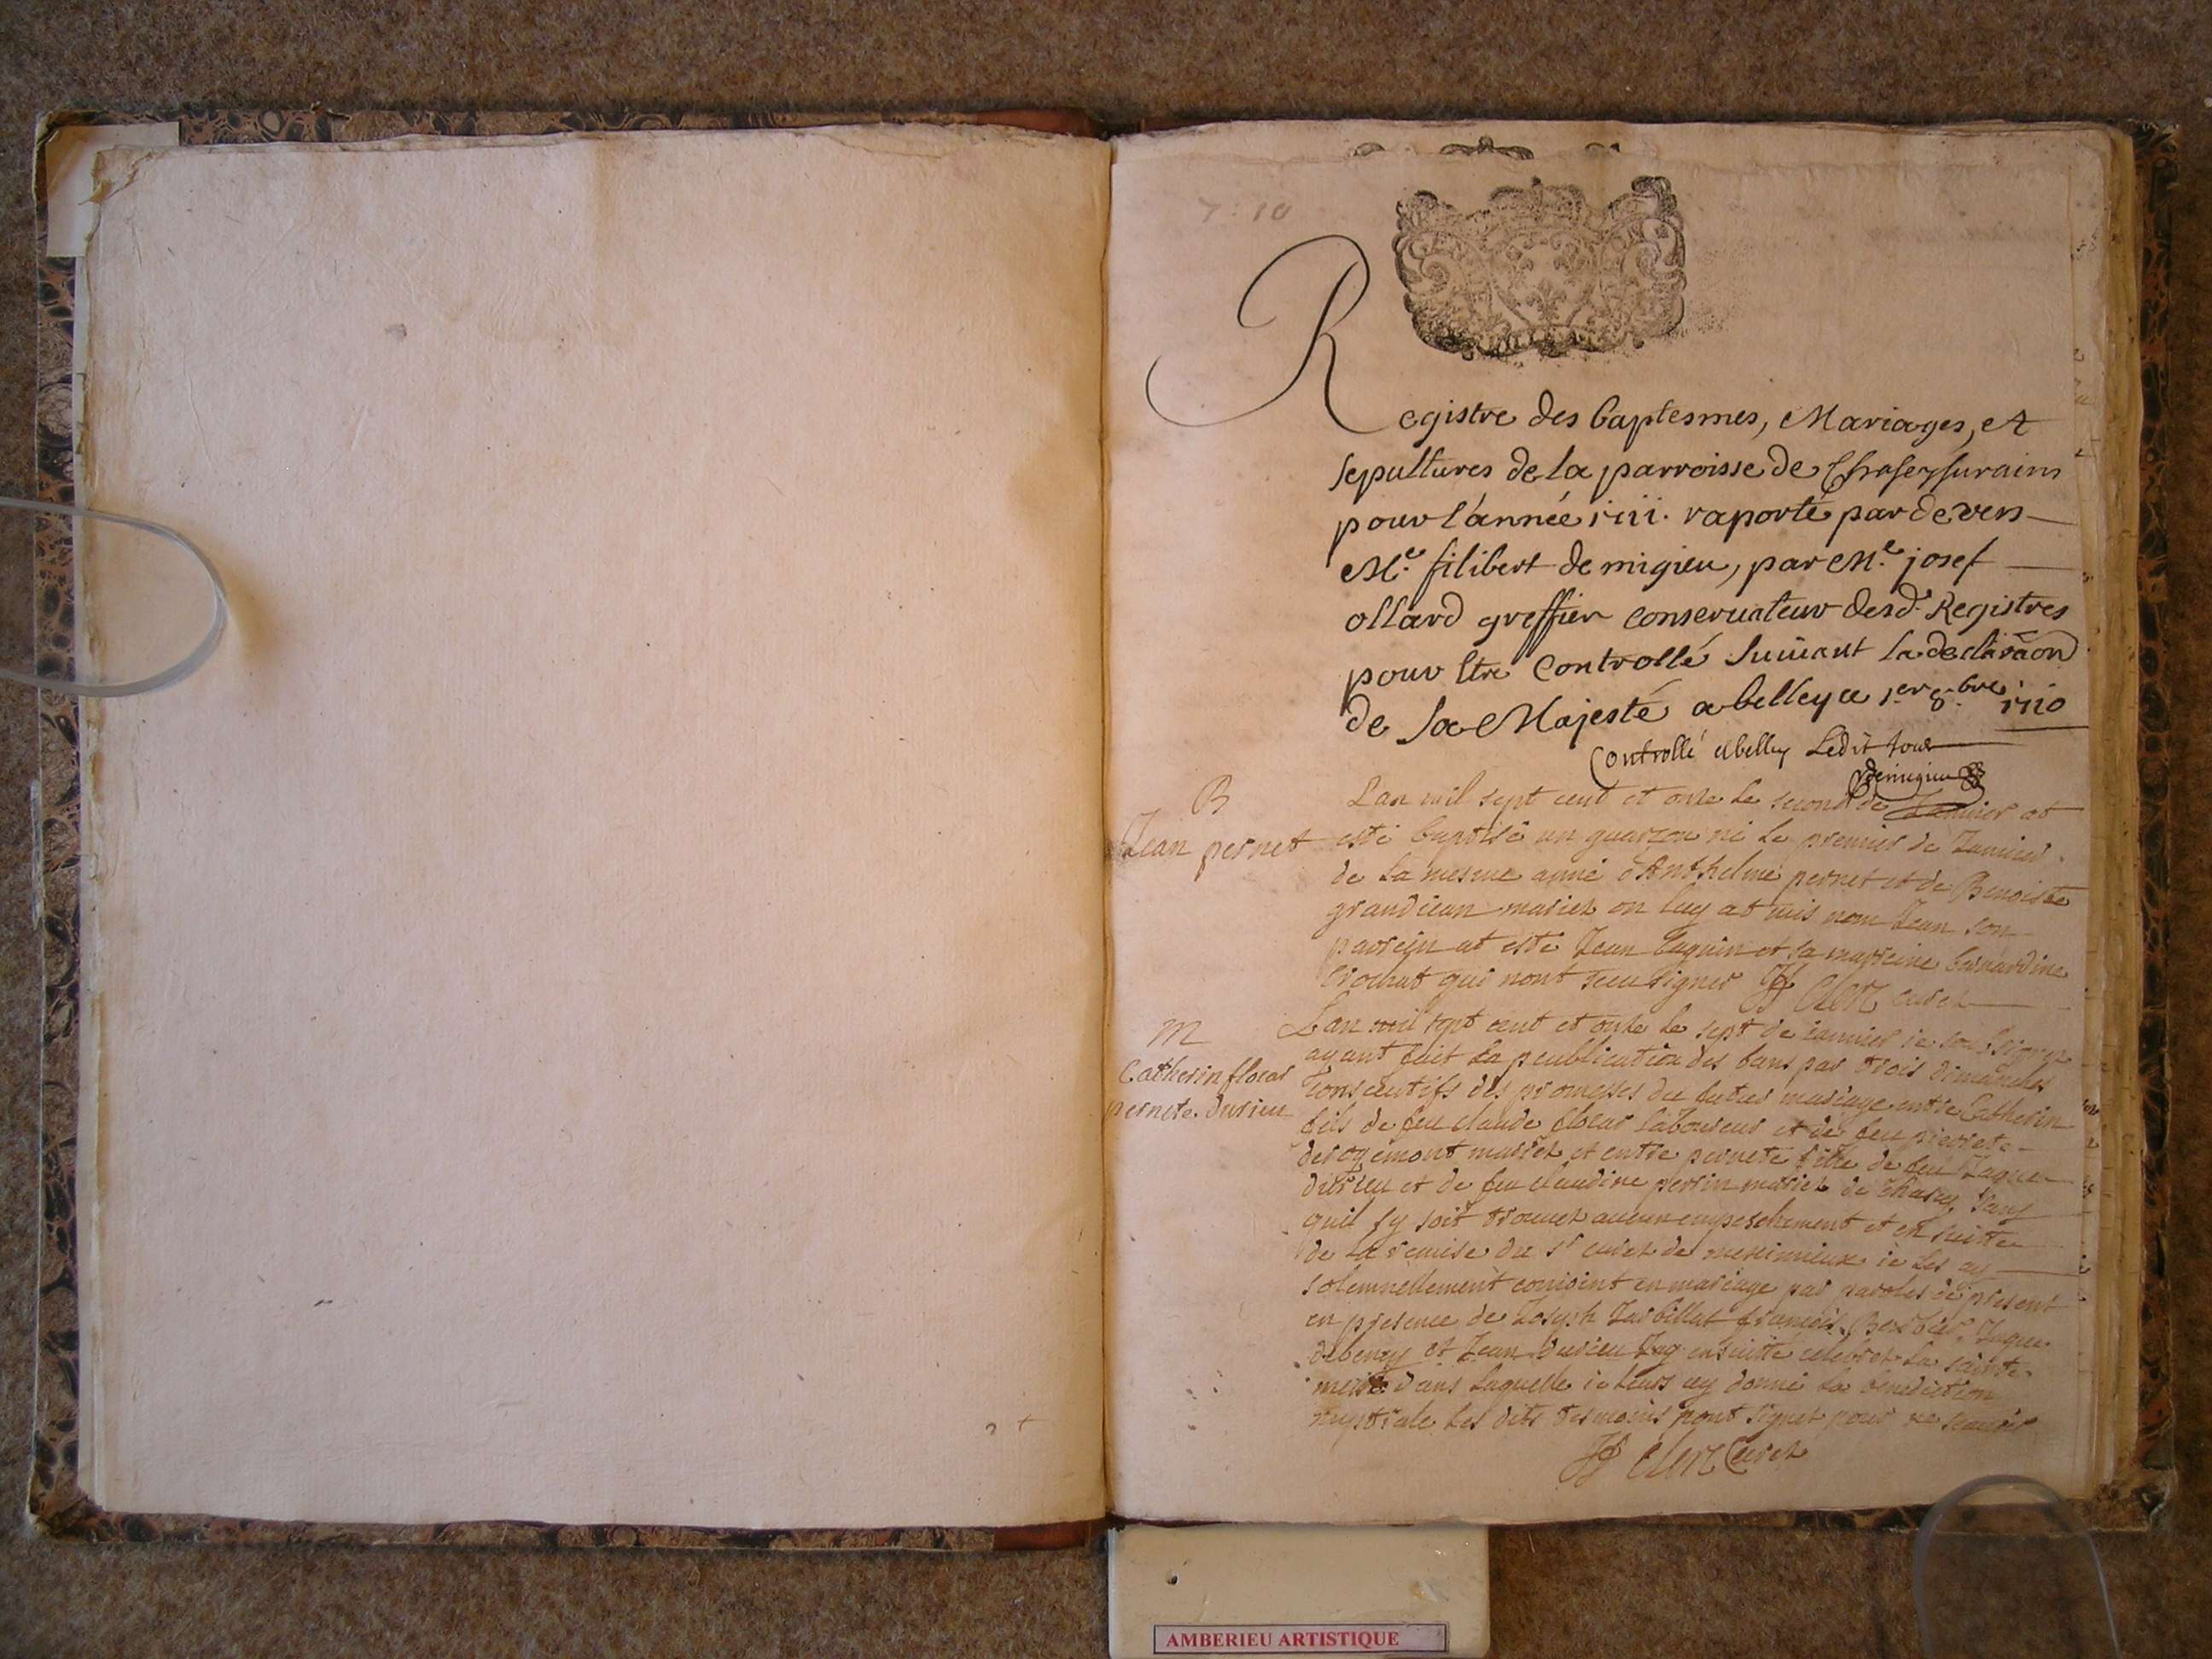 7:10
Registre des baptesmes, Mariages, et
sepultures de la parroisse de Chasey surains
pour l'année 1711. raporté par devers
Me. filibert de migieu, par Me. josef
ollard greffier conseruateur desd. Registres
pour Etre Controllé suiuant la declaraon
de sa Majesté a belley ce 1er. 8.bre 1710
Controllé a belley Ledit jour
demigieu
B
Jean pernet
Lan mil sept cent et onze le second de Januier at
esté baptisé un guarzon né le premier de Januier
de la mesme anné d'Anthelme pernet et de Benoiste
grandiean mariez on luy at mis nom Jean son
parrein at esté Jean et sa marreine bernardine
qui nont sceu signer Clerc curez
M
Catherin flocar
pernete durieu
Lan mil sept cent et onze le sept de ianuier ie soussigne
ayant fait la peublication des bans par trois dimanches
consecutifs des promesses du futur mariage entre Catherin
fils de feu claude flocar laboureur et de feu pierrete
derogemont mariez et entre pernete fille de feu Jaque
durieu et de feu claudine perrin mariez de Chasey, sans
quil sy soit trouuez aucun empeschement et en suitte
de la remise du Sr curez de meximieux ie les ay
solemnellement conioint en mariage par paroles de present
en presence de Joseph Jarbillat françois Berbier, Jaque
debeney et Jean durieu Jay ensuitte celebrez la sainte
messe dans laquelle ie leurs ay donné la benediction
nuptiale les dits tesmoins nont signez pour ne scauoir
Clerc Curez
AMBERIEU ARTISTIQUE